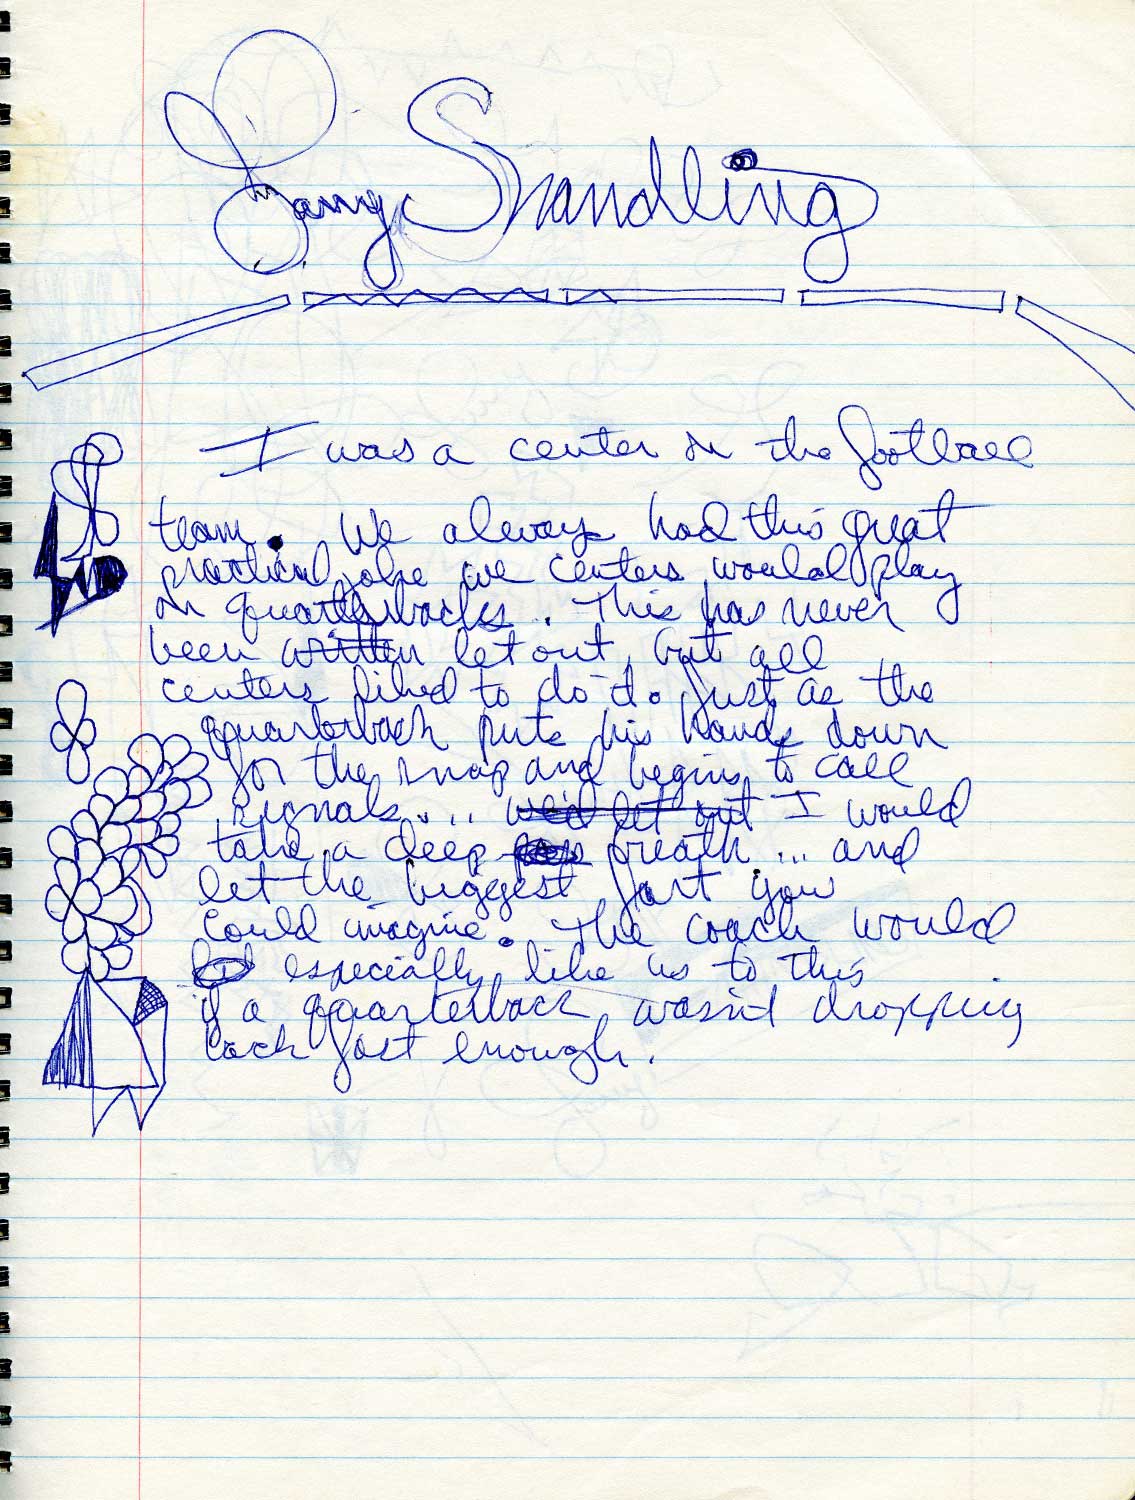 Garry Shandling
I was a center on the football
team. We always had this great
practical joke we centers would play
on quarterbacks. This has never
been written let out, but all
centers liked to do it. Just as the
quarterback puts his hands down
for the snap and begins to call
signals.... we'd let out I would
take a deep breath... and
let the biggest fart you
could imagine. The coach would
especially like us to this
if a quarterback wasn't dropping
back fast enough.